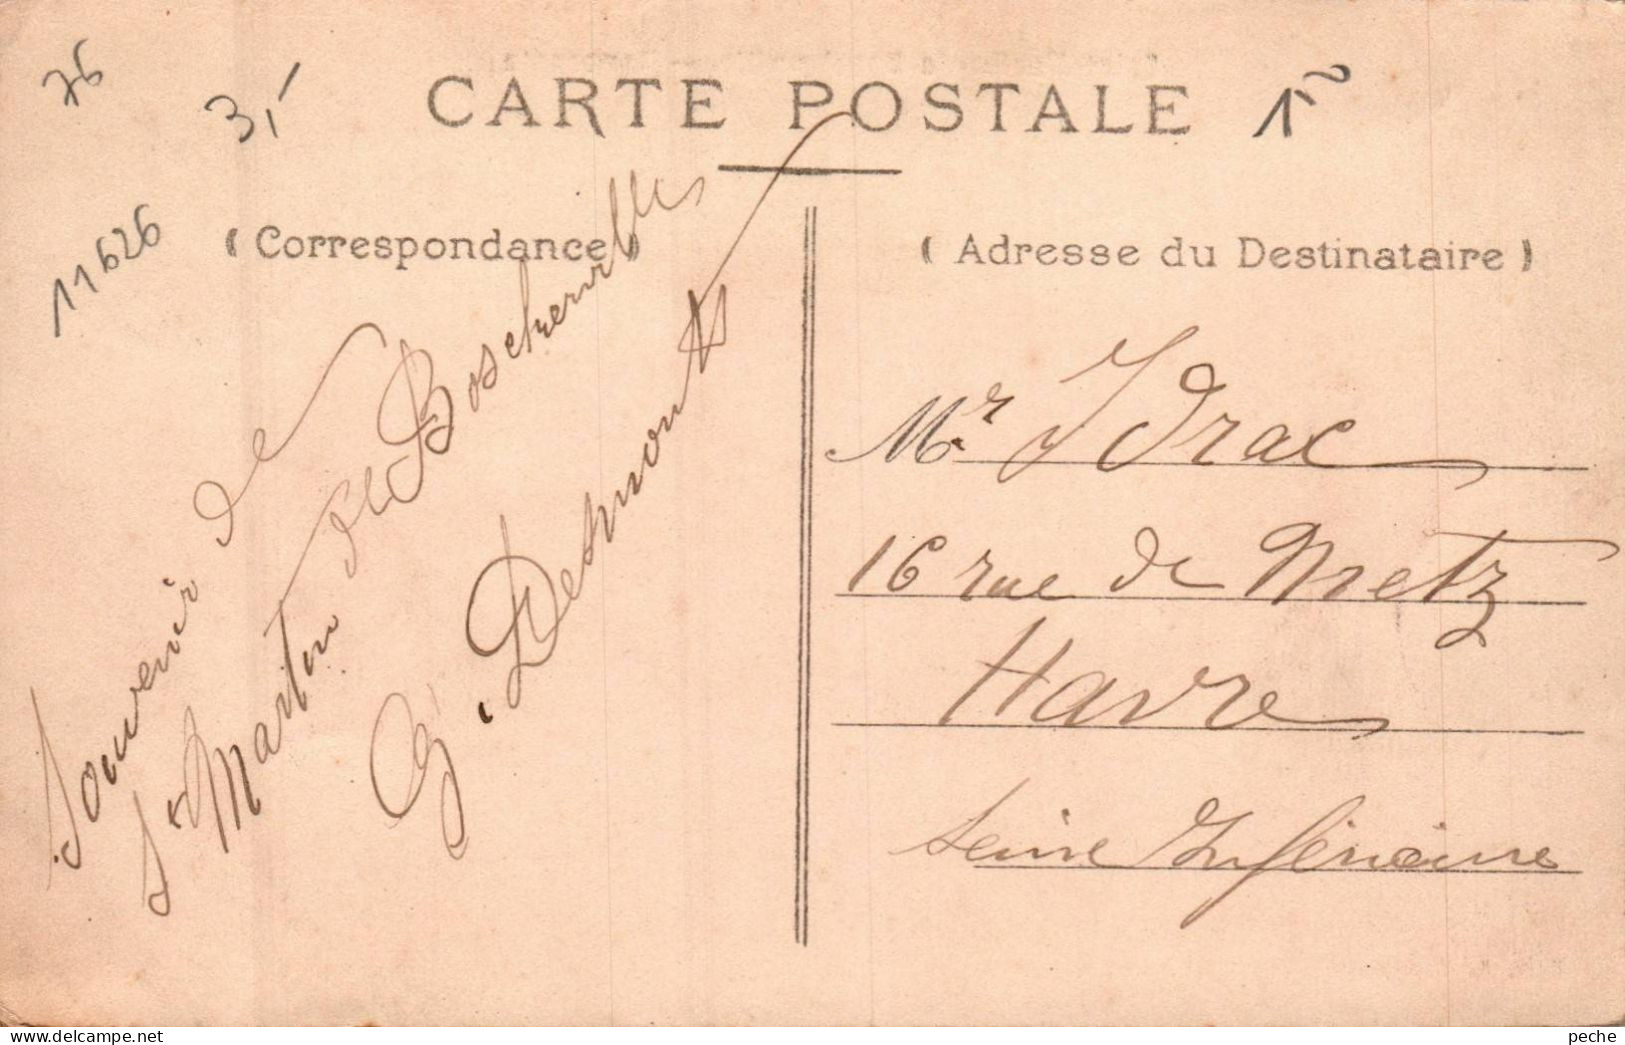 76
3,-
CARTE POSTALE
11626
( Correspondance )
( Adresse du Destinataire )
Souvenir de
St Martin de Boscherville
G. Desmonts
Mr. Idrac
16 rue de Metz
Havre
Seine Inférieure
delcampe.net
peche